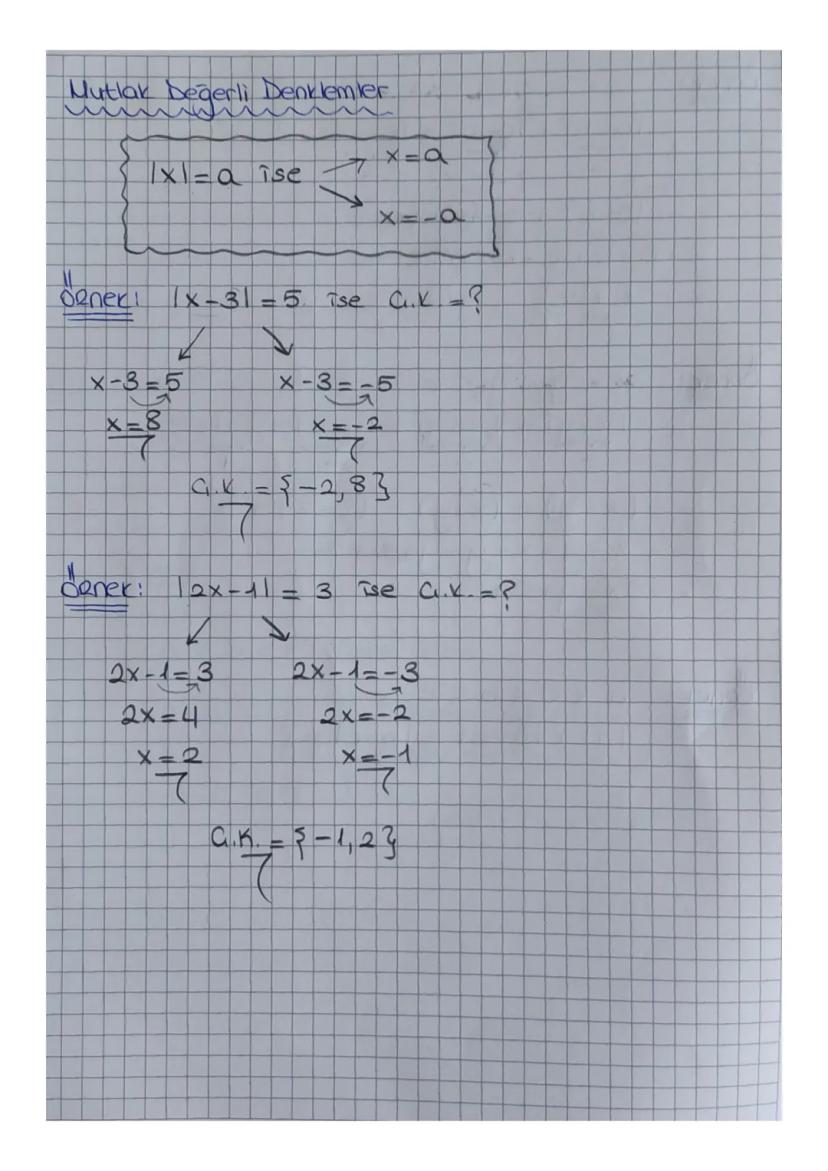 Mutlak Değerli Denklemler
|x|=a ise
x=a
x=-a
Örnek: |x-3|=5 ise Ç.K.=?
x-3=5 x-3=-5
x=8 x=-2
Ç.K.={-2,8}
Örnek: |2x-1|=3 ise Ç.K.=?
2x-1=3 2x-1=-3
2x=4 2x=-2
x=2 x=-1
Ç.K.={-1,2}